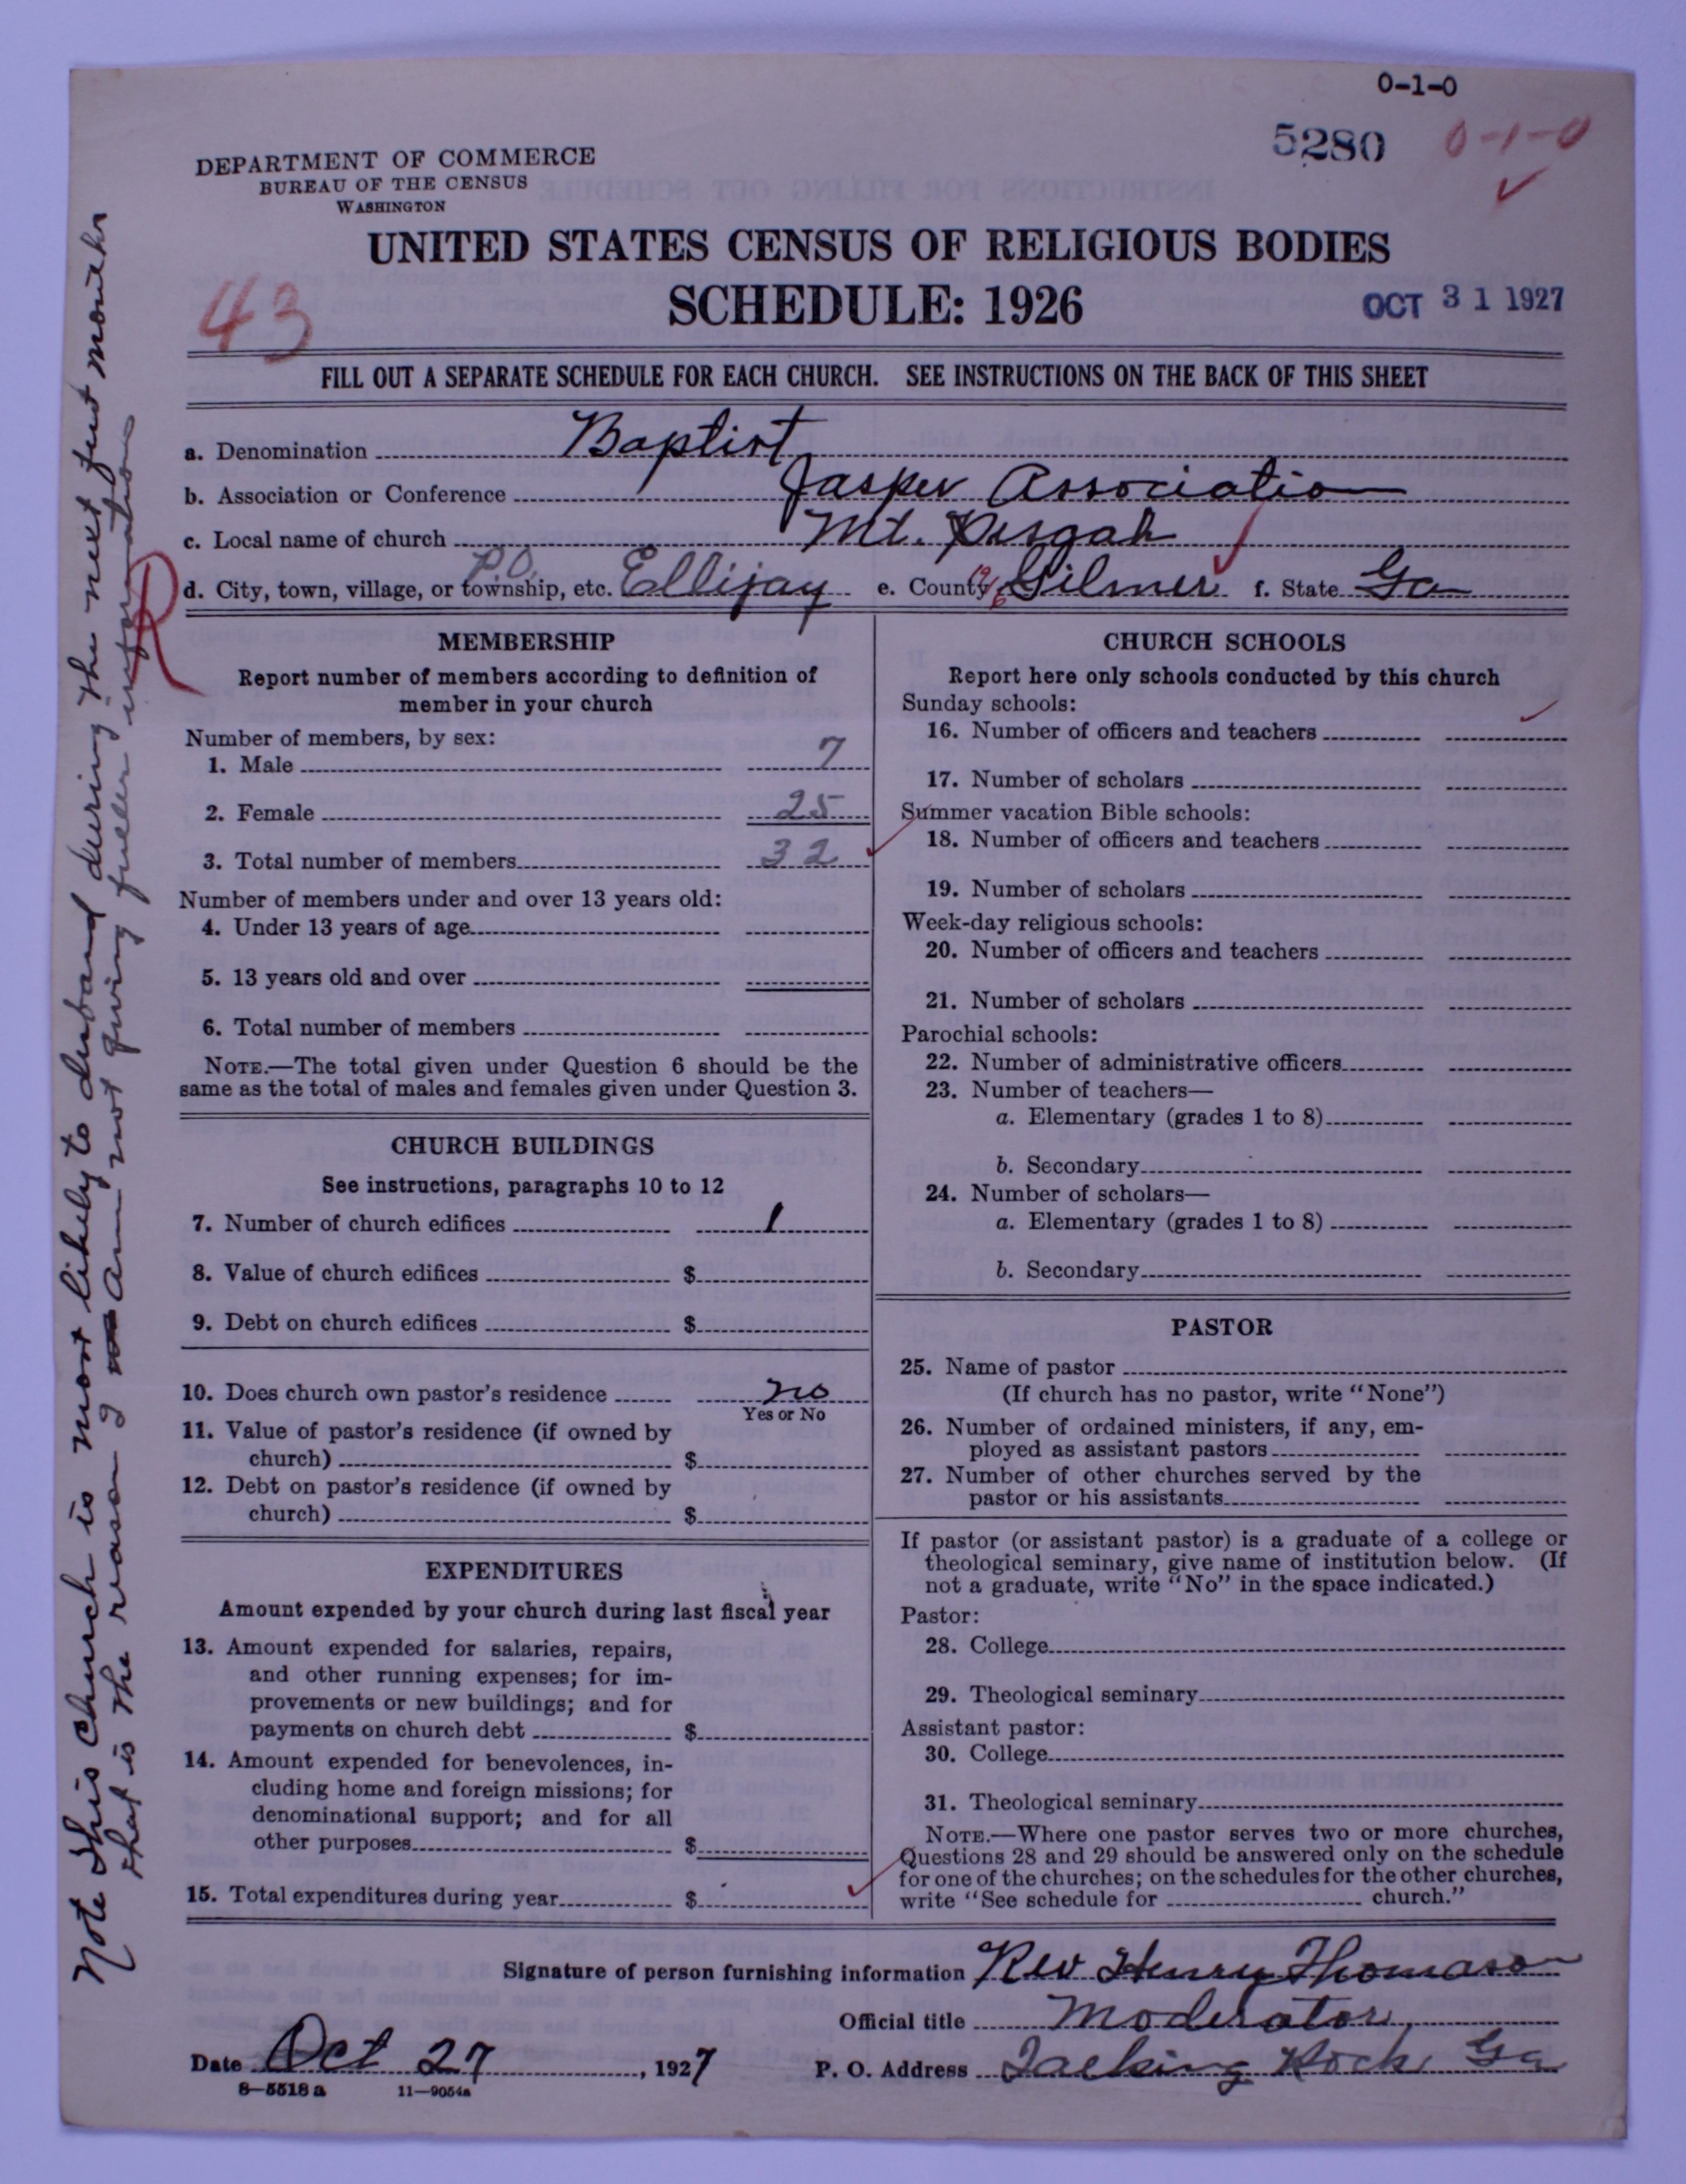 0-1-0
5280 0-1-0
DEPARTMENT OF COMMERCE
BUREAU OF THE CENSUS
WASHINGTON
UNITED STATES CENSUS OF RELIGIOUS BODIES
43
SCHEDULE: 1926
OCT 31 1927
FILL OUT A SEPARATE SCHEDULE FOR EACH CHURCH. SEE INSTRUCTIONS ON THE BACK OF THIS SHEET
a. Denomination Baptist
b. Association or Conference Jasper Association
c. Local name of church Mt. Pisgah
R
d. City, town, village, or township, etc. P.O. Ellijay e. County Gilmer f. State Ga
MEMBERSHIP
Report number of members according to definition of
member in your church
Number of members, by sex:
1. Male 7
2. Female 25
3. Total number of members 32
Number of members under and over 13 years old:
4. Under 13 years of age
5. 13 years old and over
6. Total number of members
NOTE.—The total given under Question 6 should be the
same as the total of males and females given under Question 3.
CHURCH BUILDINGS
See instructions, paragraphs 10 to 12
7. Number of church edifices 1
8. Value of church edifices $
9. Debt on church edifices $
10. Does church own pastor's residence no
Yes or No
11. Value of pastor's residence (if owned by
church) $
12. Debt on pastor's residence (if owned by
church) $
EXPENDITURES
Amount expended by your church during last fiscal year
13. Amount expended for salaries, repairs,
and other running expenses; for im-
provements or new buildings; and for
payments on church debt $
14. Amount expended for benevolences, in-
cluding home and foreign missions; for
denominational support; and for all
other purposes $
15. Total expenditures during year $
CHURCH SCHOOLS
Report here only schools conducted by this church
Sunday schools:
16. Number of officers and teachers
17. Number of scholars
Summer vacation Bible schools:
18. Number of officers and teachers
19. Number of scholars
Week-day religious schools:
20. Number of officers and teachers
21. Number of scholars
Parochial schools:
22. Number of administrative officers
23. Number of teachers—
a. Elementary (grades 1 to 8)
b. Secondary
24. Number of scholars—
a. Elementary (grades 1 to 8)
b. Secondary
PASTOR
25. Name of pastor
(If church has no pastor, write "None")
26. Number of ordained ministers, if any, em-
ployed as assistant pastors
27. Number of other churches served by the
pastor or his assistants
If pastor (or assistant pastor) is a graduate of a college or
theological seminary, give name of institution below. (If
not a graduate, write "No" in the space indicated.)
Pastor:
28. College
29. Theological seminary
Assistant pastor:
30. College
31. Theological seminary
NOTE.—Where one pastor serves two or more churches,
Questions 28 and 29 should be answered only on the schedule
for one of the churches; on the schedules for the other churches,
write "See schedule for church."
Signature of person furnishing information Rev Henry Thomason
Official title Moderator
Date Oct 27, 1927 P. O. Address Talking Rock Ga
8—5518 a 11—9054a
Note This church is most likely to disband during the next few months
that is the reason I am not giving fuller information